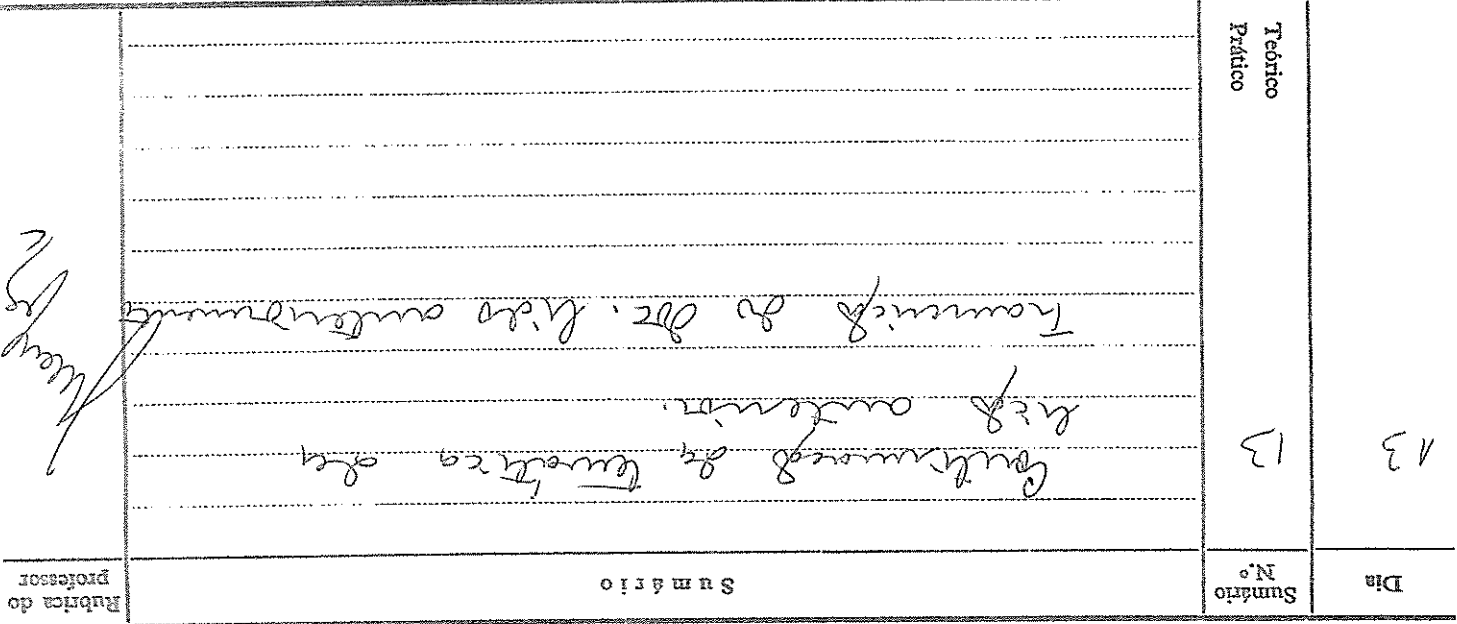 Dia
Sumário N.º
Sumário
Rubrica do professor
13
13
Continuação da temática da
lição anterior.
Transcrição do doc. lido anteriormente
Teórico
Prático